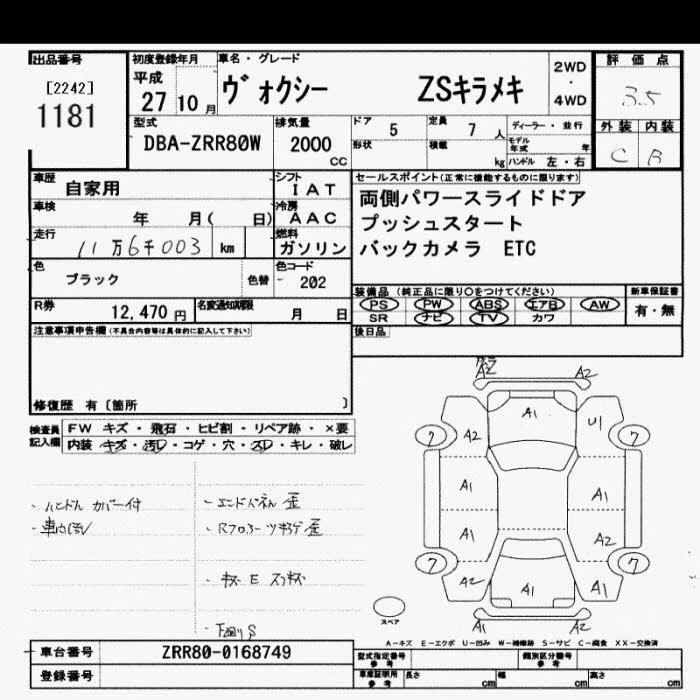 出品番号 初度登録年月 車名・グレード 2WD・4WD 評価点
[2242] 平成 ヴォクシー ZSキラメキ 3.5
1181 27 10月
型式 排気量 ドア 5 定員 7 人 ディーラー・並行 外装 内装
DBA-ZRR80W 2000 cc 形状 積載 kg モデル年式 年 C B
ハンドル 左・右
車歴 自家用 シフト IAT セールスポイント(正常に機能するものに限ります)
車検 年 月( 日) 冷房 AAC 両側パワースライドドア
プッシュスタート
走行 11万6千003 km 燃料 ガソリン バックカメラ ETC
色 ブラック 色替 色コード - 202
装備品(純正品に限り○をつけてください) 新車保証書
R券 12,470 円 名変通知期限 月 日 PS PW ABS エアB AW 有・無
SR ナビ TV カワ
注意事項申告欄(不具合内容等は具体的に記入して下さい) 後日品
修復歴 有〔箇所 〕
検査員記入欄 FW キズ・飛石・ヒビ割・リペア跡・×要
内装 キズ・汚レ・コゲ・穴・スレ・キレ・破レ
A2 A2
A1 U1
7 A2 7
A1 A1
A1 A2
7 A2 A1 A1 7
A1 A2
スペア
・ハンドル カバー付 ・エンドパネル 歪
・Rフロアー ツキアゲ 歪
・下廻り S
A-キズ E-エクボ U-凹み W-補修跡 S-サビ C-腐食 XX-交換済
車台番号 ZRR80-0168749 型式指定番号 参考 類別区分番号 参考
登録番号 車庫証明用 参考 長さ cm 幅 cm 高さ cm